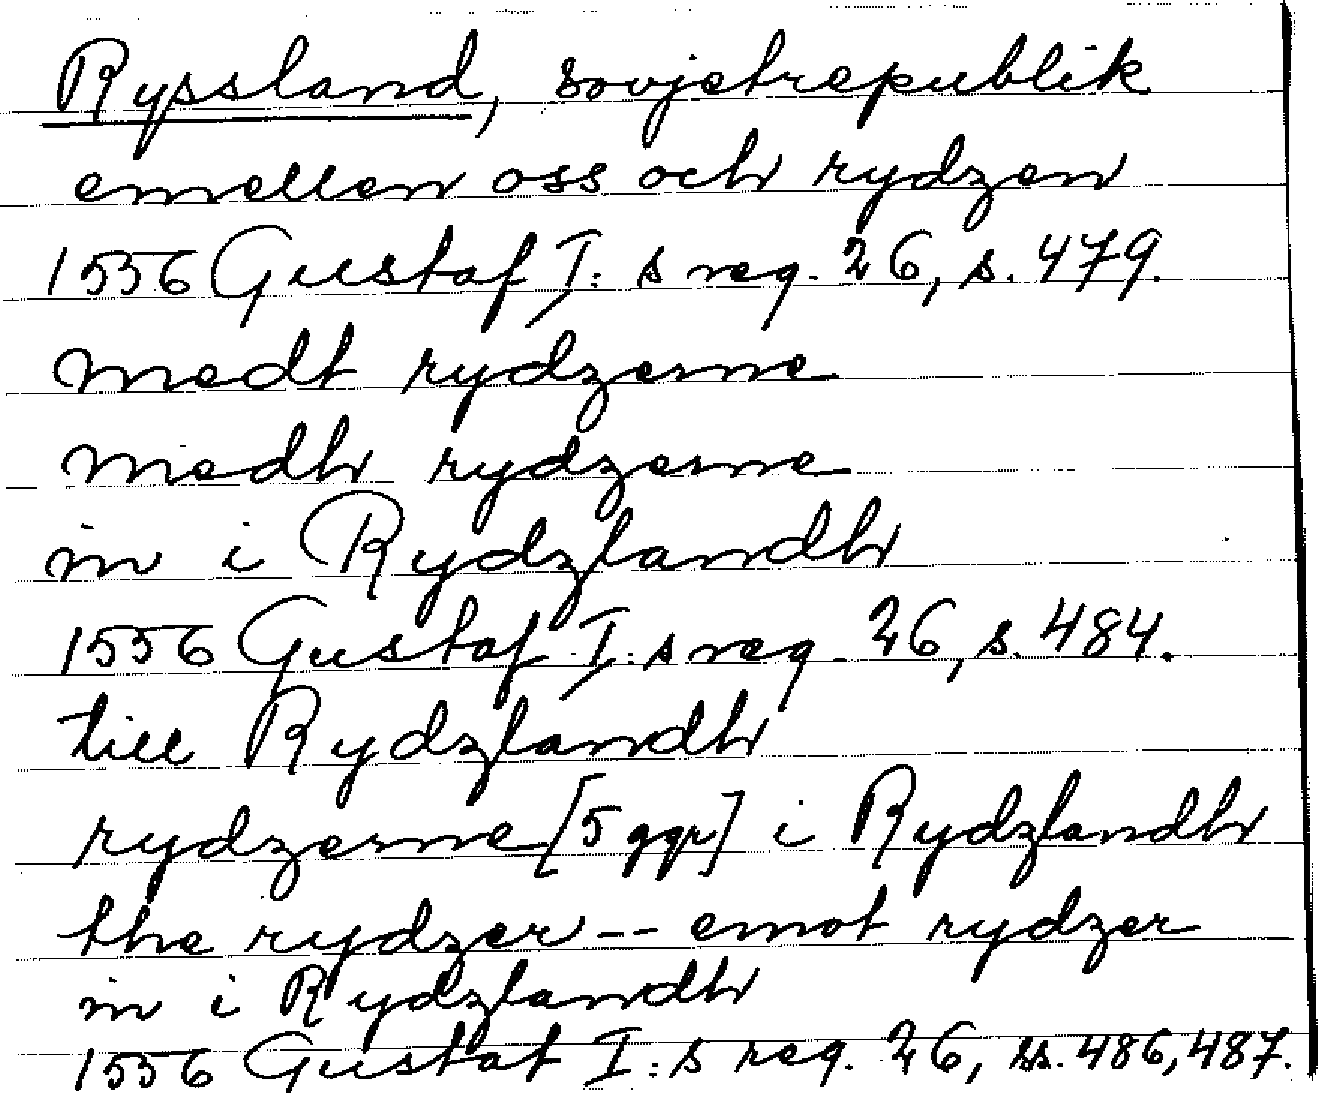 Ryssland, sovjetrepublik
emellen oss och rydzen
1556 Gustaf I: s reg. 26, s. 479.
medt rydzerne
medh rydzerne
in i Rydzlandh
1556 Gustaf I: s reg. 26, s. 484.
till Rydzlandh
rydzerne [5 ggr] i Rydzlandh
the rydzer -- emot rydzer
in i Rydzlandh
1556 Gustaf I: s reg. 26, ss. 486, 487.